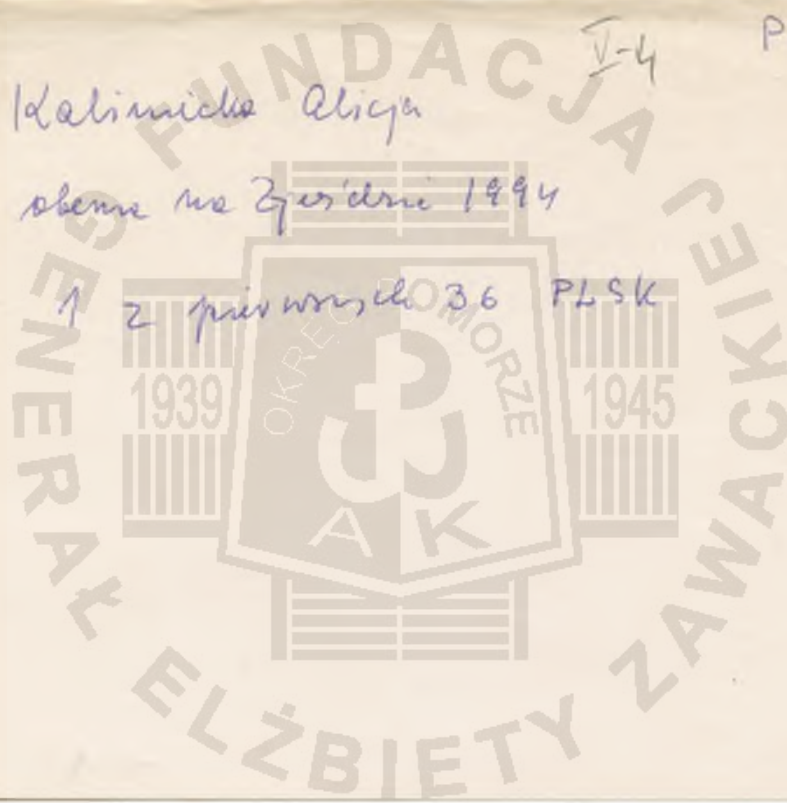 V-4 P
Kalinicka Alicja
obecna na Zjeździe 1994
1 z pierwszych 36 PLSK
FUNDACJA GENERAŁ ELŻBIETY ZAWACKIEJ
OKRĘG POMORZE
1939 1945
AK